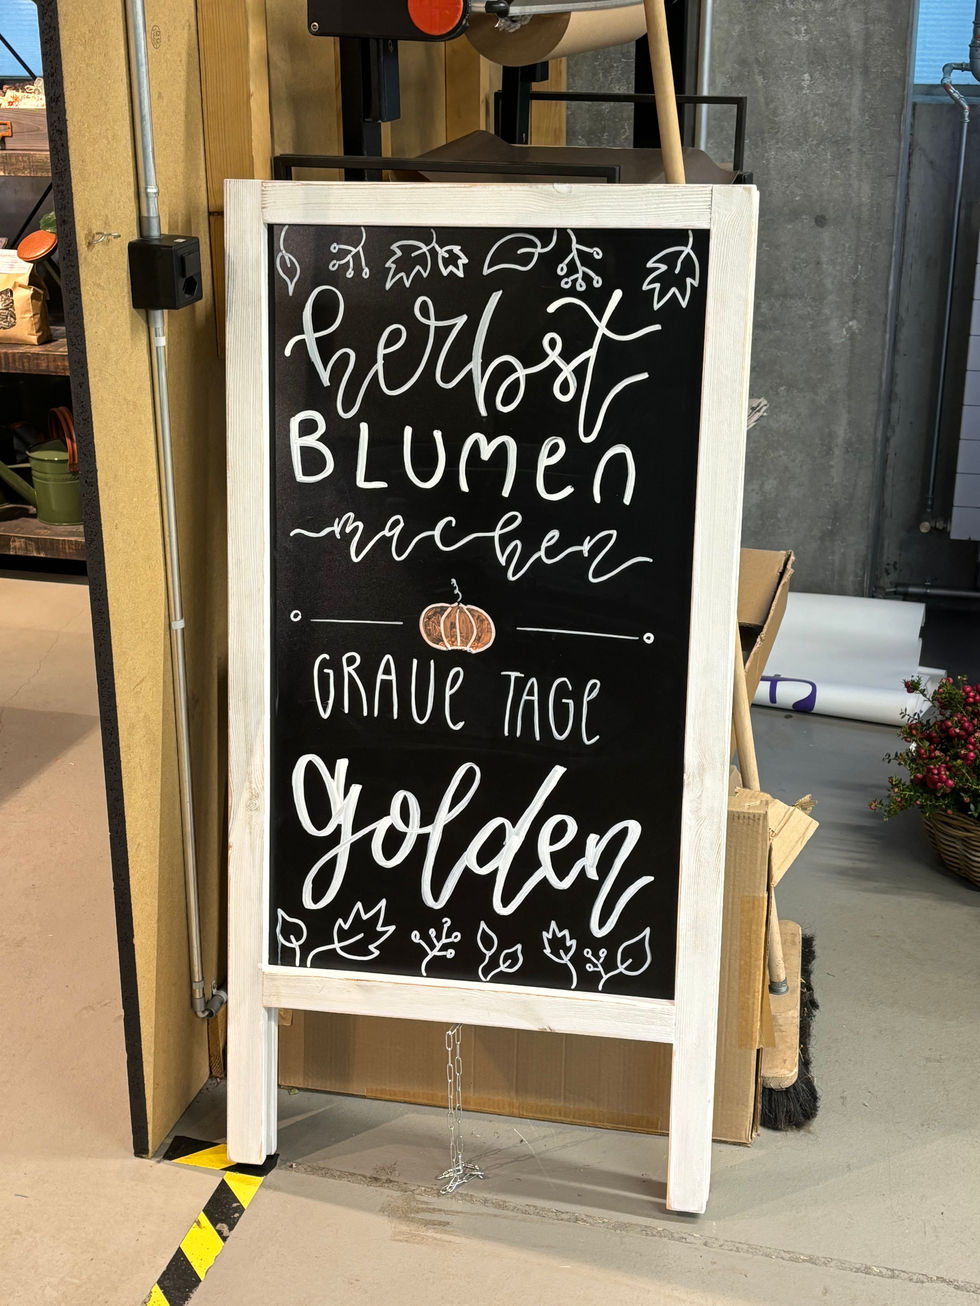 herbst
BLUMEN
machen
GRAUE TAGE
golden